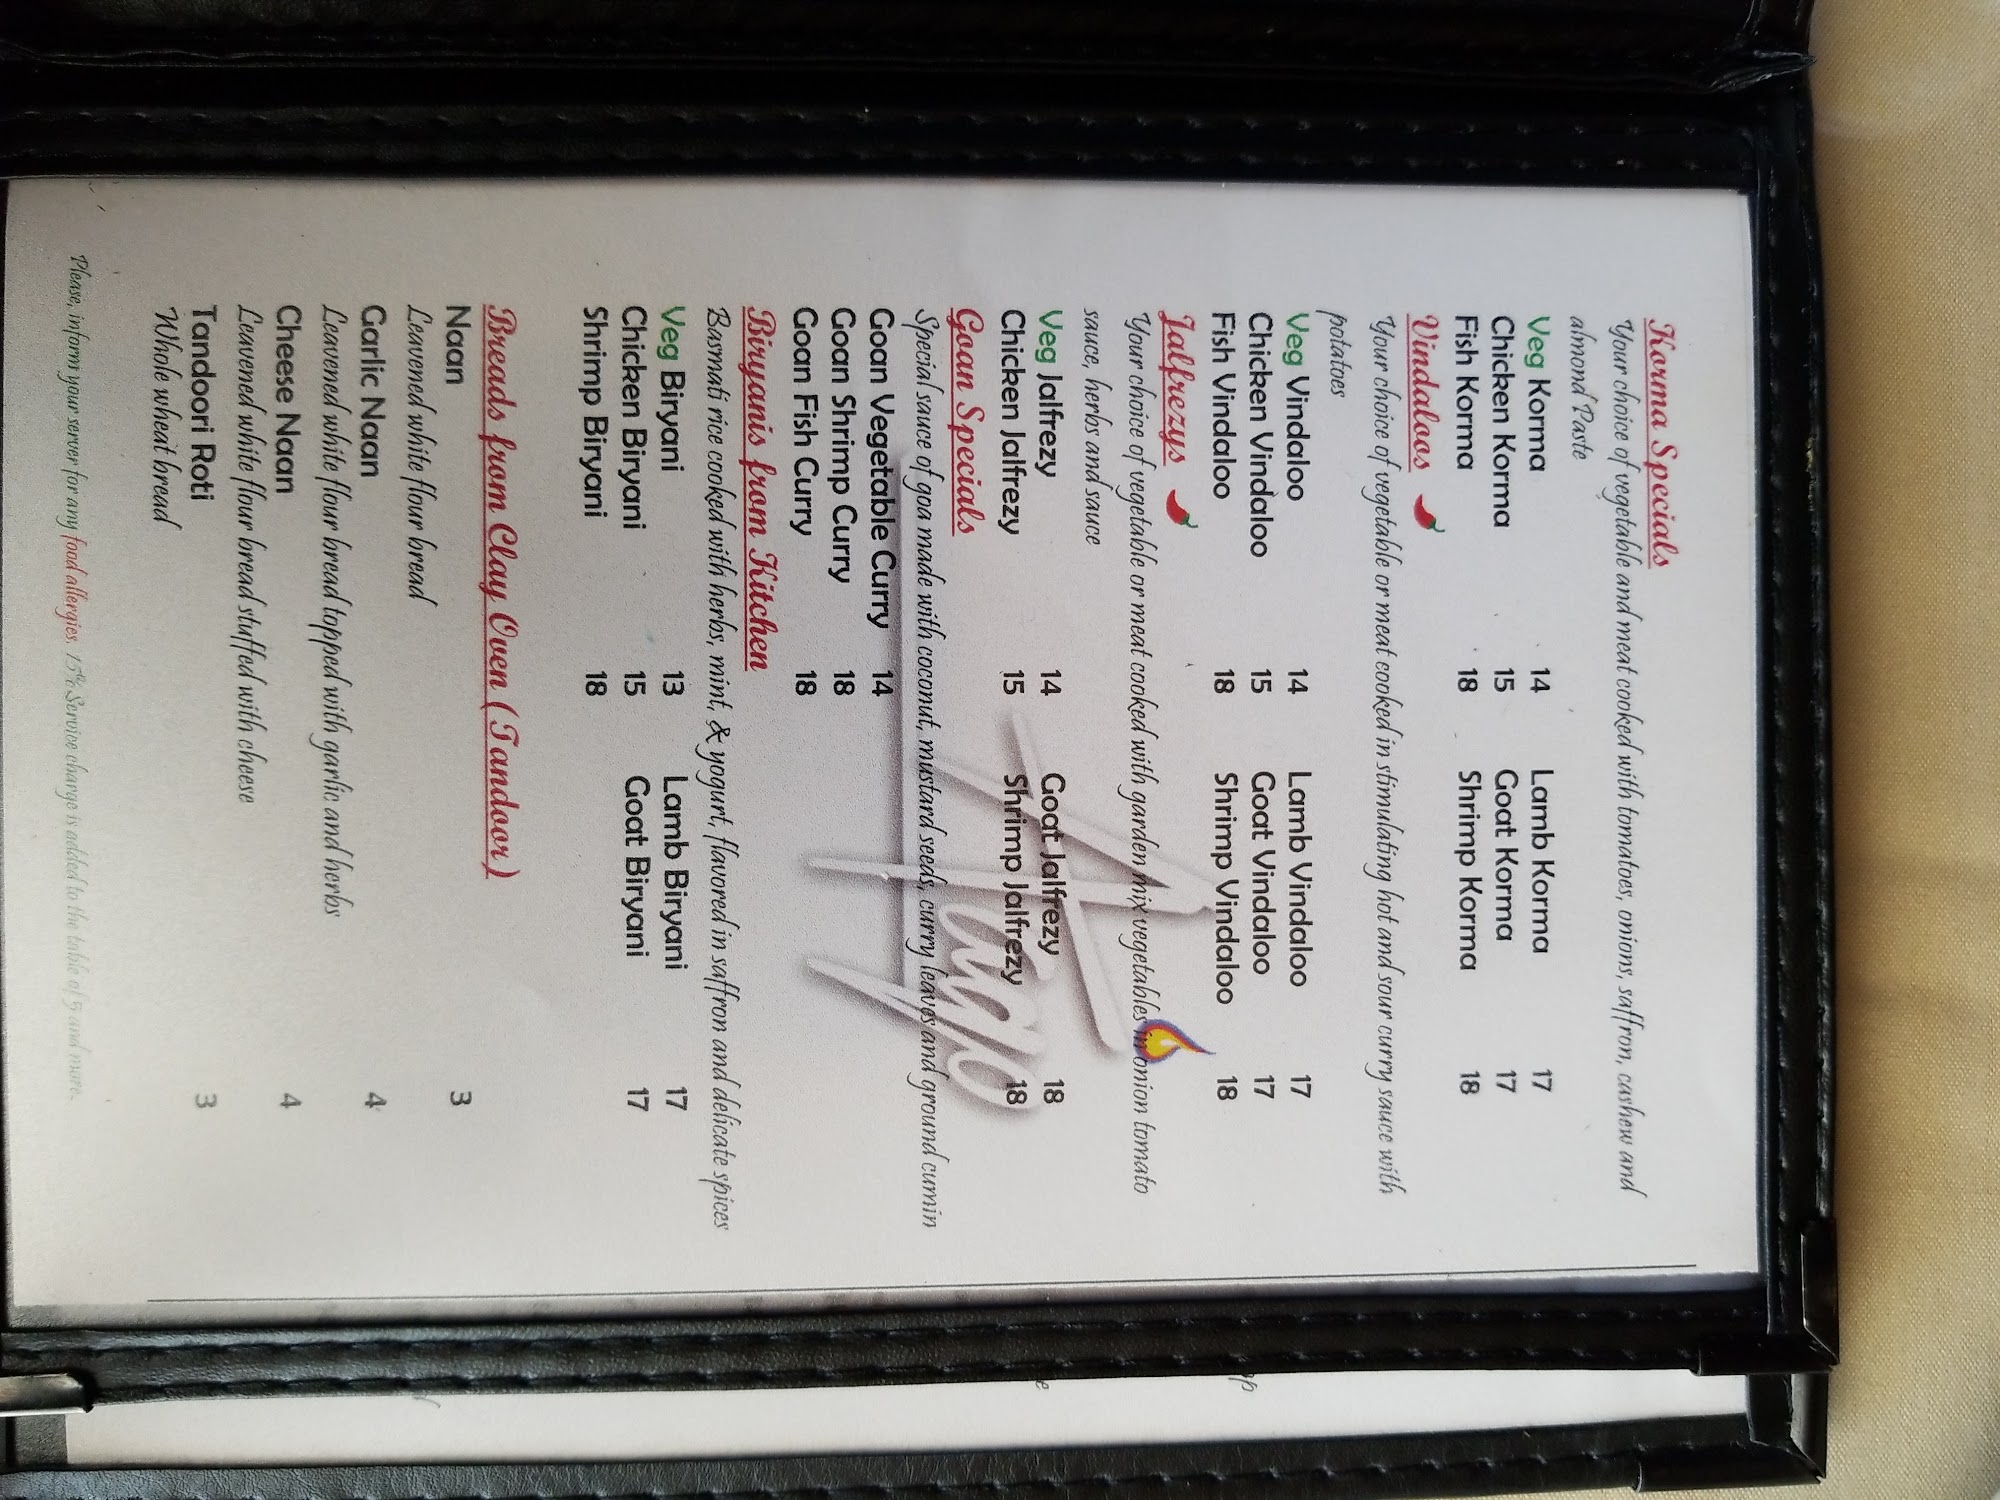 Korma Specials
Your choice of vegetable and meat cooked with tomatoes, onions, saffron, cashew and
almond Paste
Veg Korma 14 Lamb Korma 17
Chicken Korma 15 Goat Korma 17
Fish Korma 18 Shrimp Korma 18
Vindaloos
Your choice of vegetable or meat cooked in stimulating hot and sour curry sauce with
potatoes
Veg Vindaloo 14 Lamb Vindaloo 17
Chicken Vindaloo 15 Goat Vindaloo 17
Fish Vindaloo 18 Shrimp Vindaloo 18
Jalfrezys
Your choice of vegetable or meat cooked with garden mix vegetables in onion tomato
sauce, herbs and sauce
Veg Jalfrezy 14 Goat Jalfrezy 18
Chicken Jalfrezy 15 Shrimp Jalfrezy 18
Goan Specials
Special sauce of goa made with coconut, mustard seeds, curry leaves and ground cumin
Goan Vegetable Curry 14
Goan Shrimp Curry 18
Goan Fish Curry 18
Biryanis from Kitchen
Basmati rice cooked with herbs, mint, & yogurt, flavored in saffron and delicate spices
Veg Biryani 13 Lamb Biryani 17
Chicken Biryani 15 Goat Biryani 17
Shrimp Biryani 18
Breads from Clay Oven ( Tandoor )
Naan 3
Leavened white flour bread
Garlic Naan 4
Leavened white flour bread topped with garlic and herbs
Cheese Naan 4
Leavened white flour bread stuffed with cheese
Tandoori Roti 3
Whole wheat bread
Please, inform your server for any food allergies. 15% Service charge is added to the table of 5 and more.